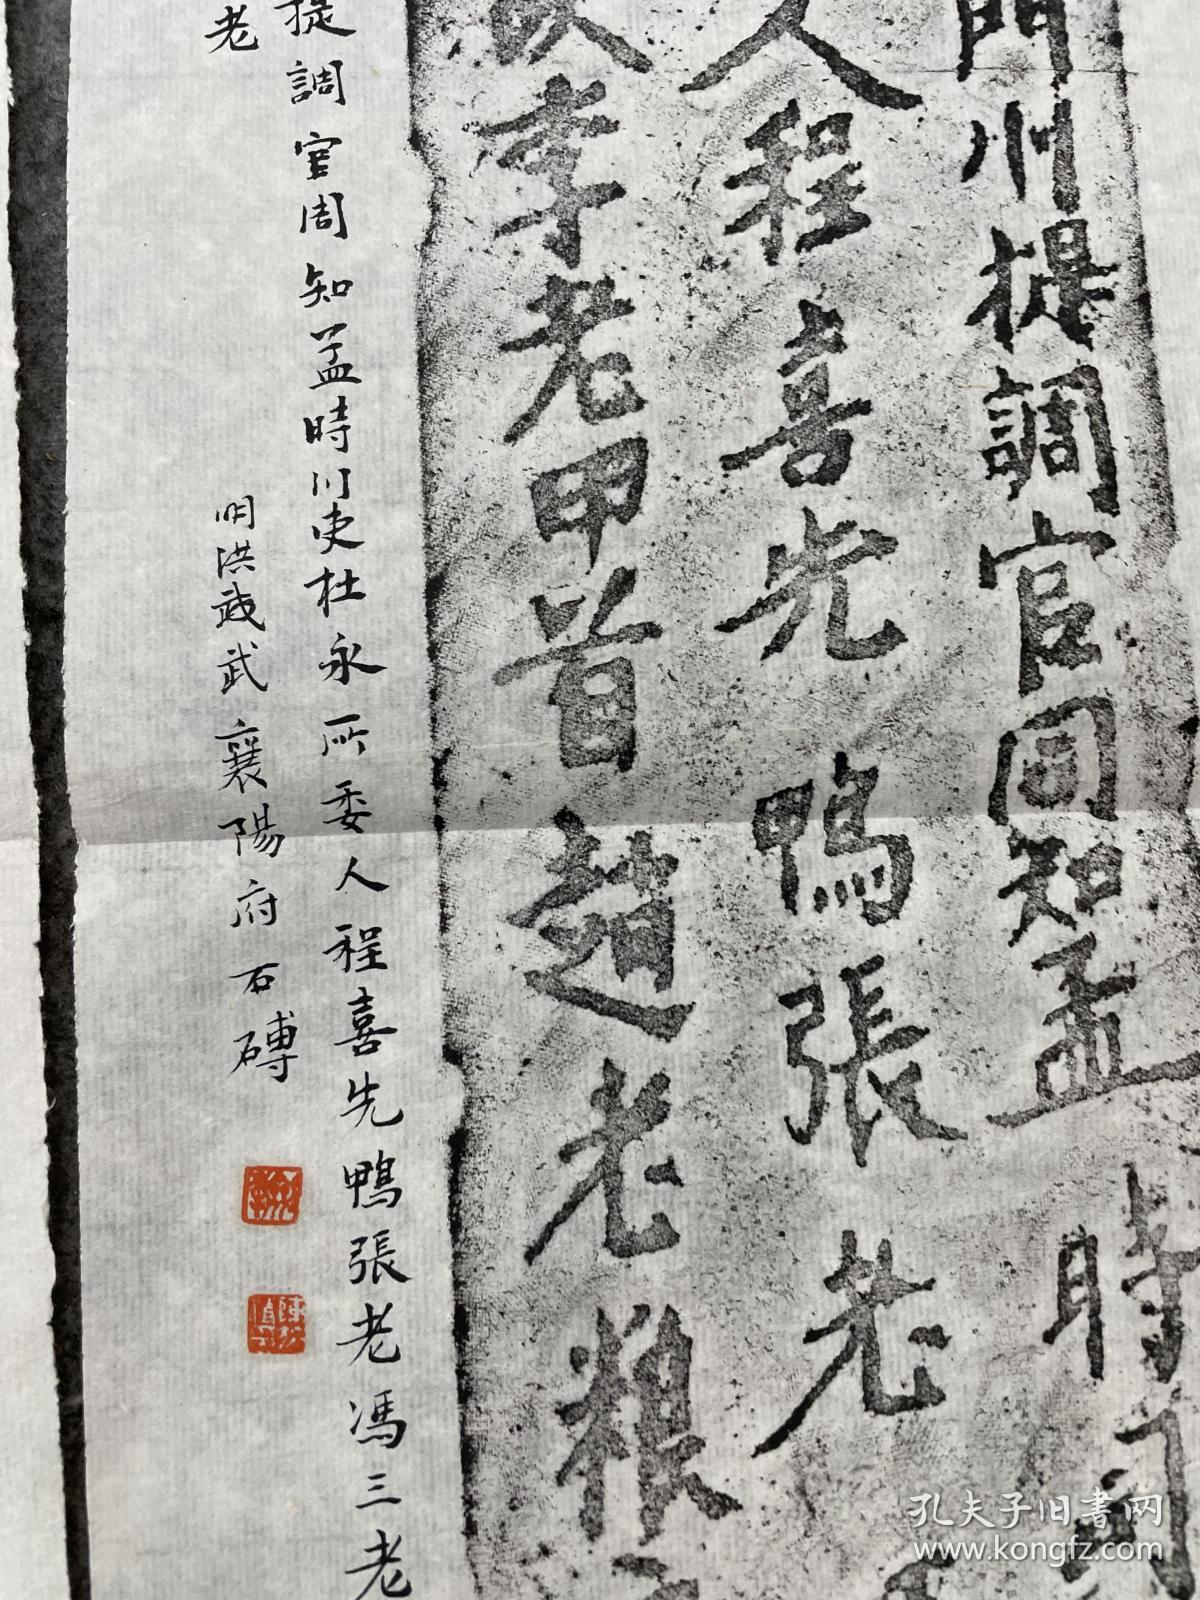 門州提調官周知孟時
人程喜先鴨張老
李老甲首趙老粮
提調官周知孟時川吏杜永所委人程喜先鴨張老馮三老
老
明洪武武襄陽府石磚
孔夫子旧书网
www.kongfz.com